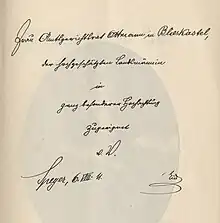 Frau Amtsgerichtsrat Ottmann, in Blieskastel,
der hochgeschätzten Landsmännin
in
ganz besonderer Hochachtung
zugeeignet
d. V.
Speyer, 6. VIII. 11.